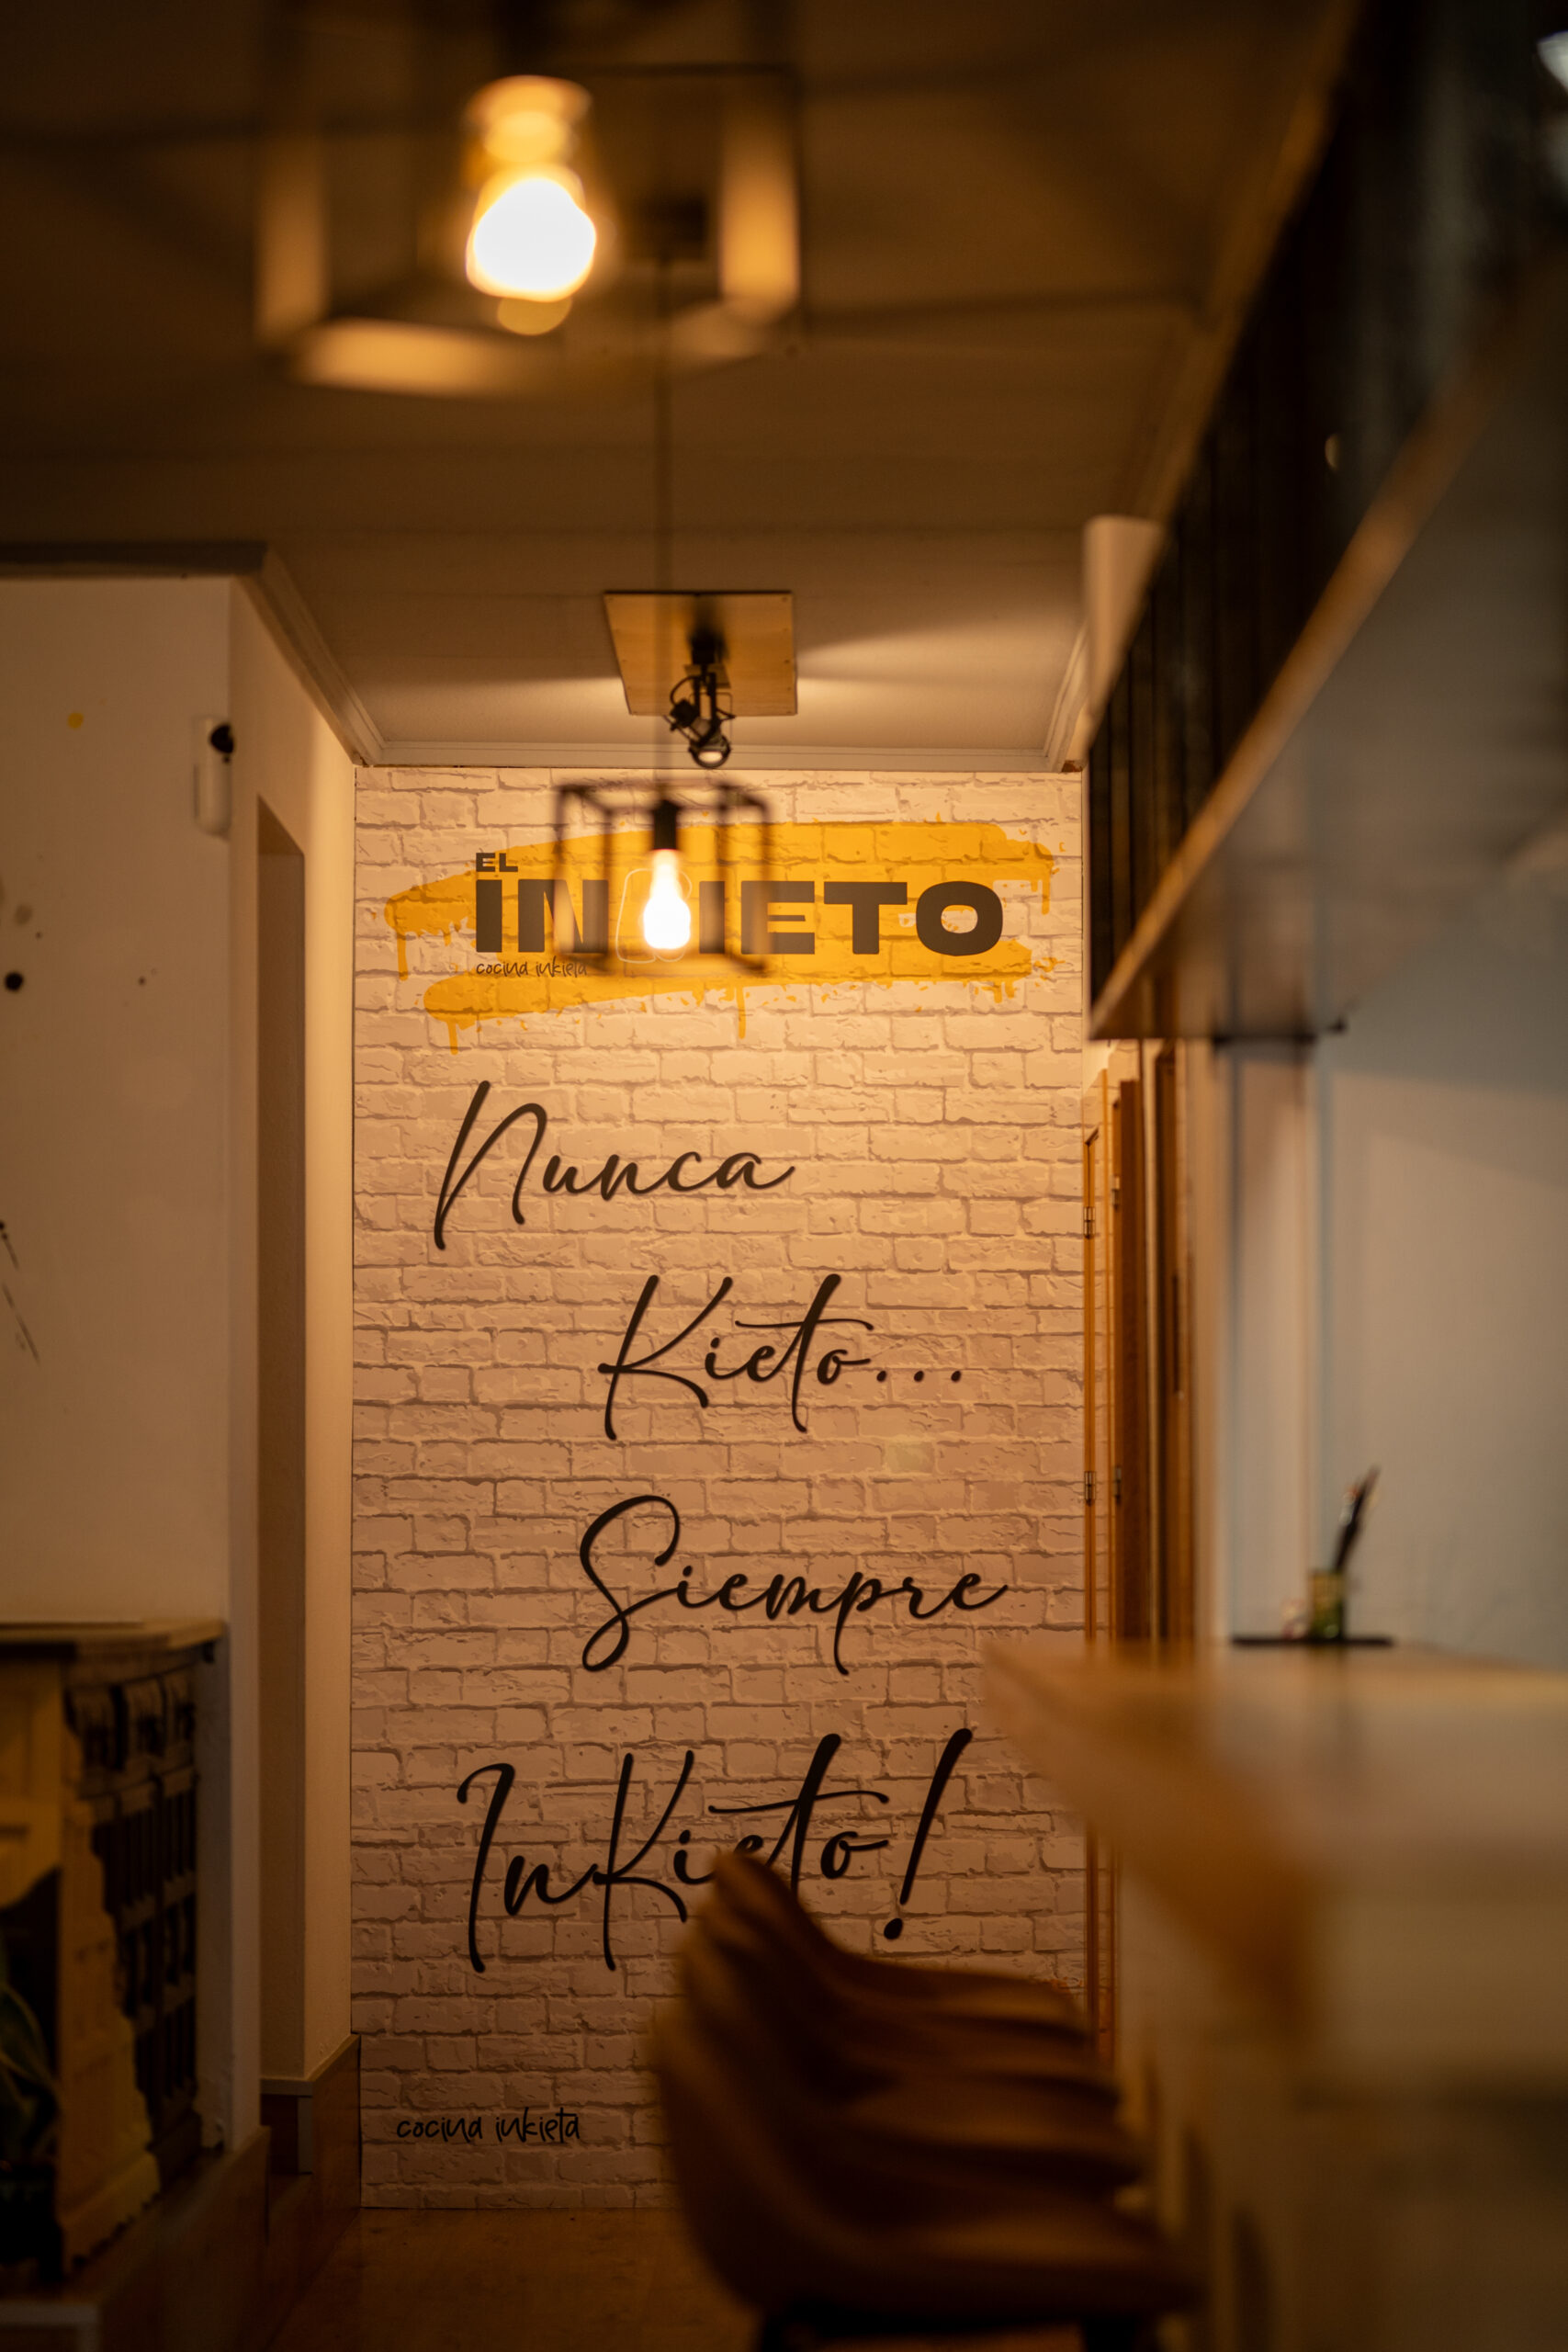 EL
INKIETO
cocina inkieta
Nunca
Kieto...
Siempre
InKieto!
cocina inkieta